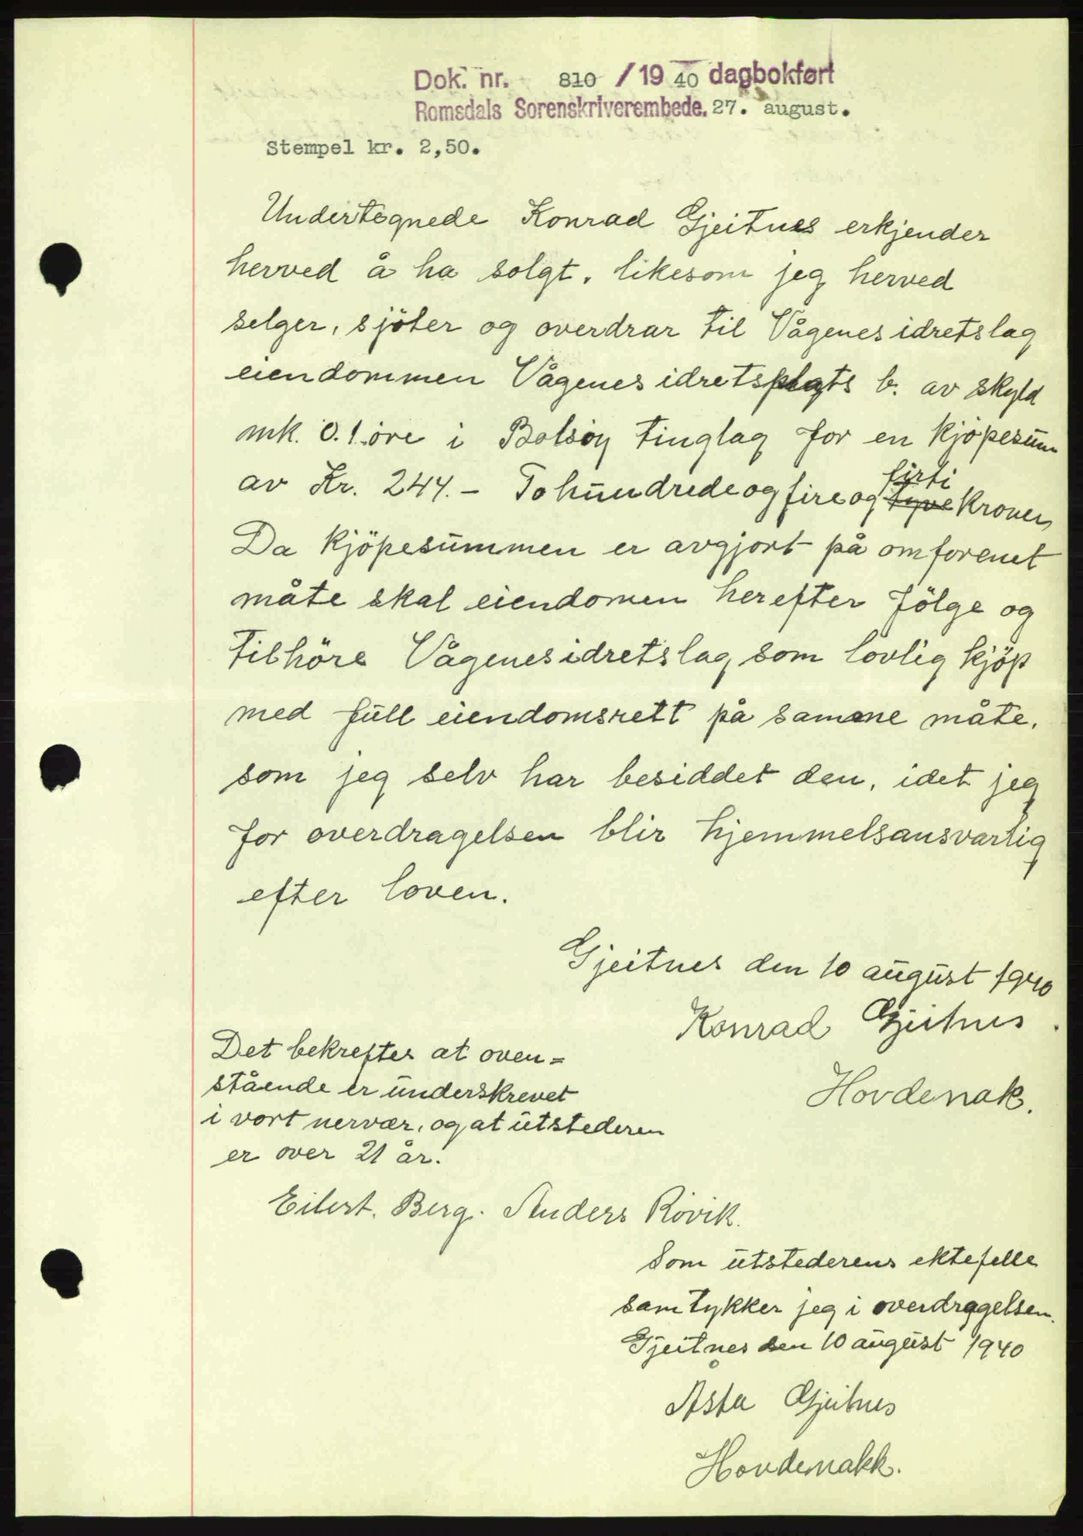 Dok. nr. 810 / 19 40 dagbokført
Romsdals Sorenskriverembede. 27. august.
Stempel kr. 2,50.
Undertegnede Konrad Gjeitnes erkjender
herved å ha solgt, likesom jeg herved
selger, sjöter og overdrar til Vågenes idretslag
eiendommen Vågenes idretsplats b. av skyld
mk. 0.1 øre i Bolsöy tinglag for en kjøpesum
av Kr. 244.- To hundrede og fire og tyve firti Kroner
Da kjöpesummen er avgjort på omforenet
måte skal eiendomen herefter följge og
tilhöre Vågenes idretslag som lovlig kjöp
med full eiendomsrett på samme måte,
som jeg selv har besiddet den, idet jeg
for overdragelsen blir hjemmelsansvarlig
efter loven.
Gjeitnes den 10 august 1940
Konrad Gjeitnes.
Hovdenak.
Det bekrefter at oven=
stående er underskrevet
i vort nervær, og at utstederen
er over 21 år.
Eilert. Berg. Anders Rövik.
Som utstederens ektefelle
samtykker jeg i overdragelsen.
Gjeitnes den 10 august 1940
Åsta Gjeitnes
Hovdenakk.